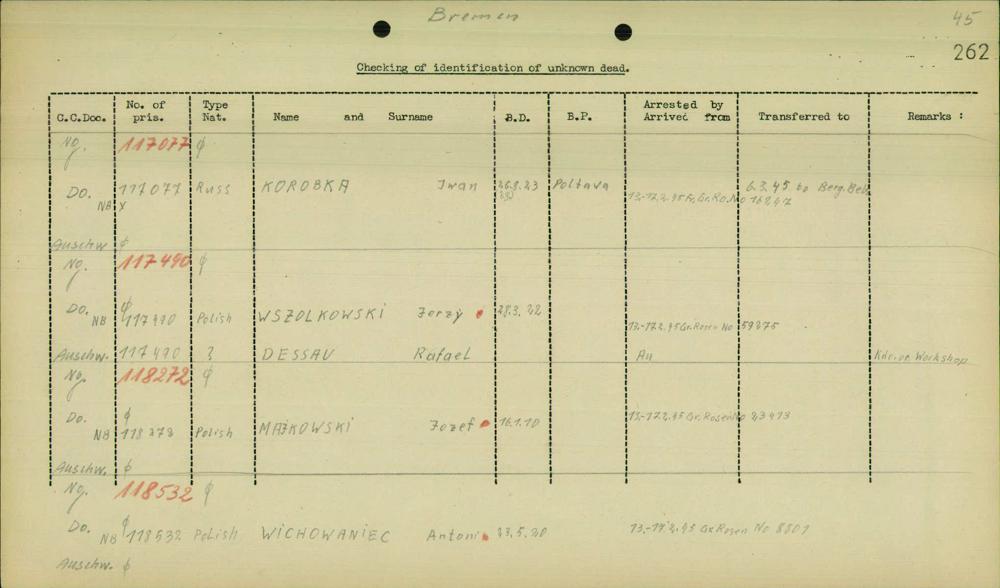 Bremen
45
262
Checking of identification of unknown dead.
C.C.Doc. No. of pris. Type Nat. Name and Surname B.D. B.P. Arrested by Arrived from Transferred to Remarks :
Ng. 117077 ϕ
Do. 117077 Russ KOROBKA Iwan 26.8.23 Poltava 6.3.45 to Berg.Bels.
NB x 13.-17.2.45 Fr. Gr. Ro. No 16247
Auschw ϕ
Ng. 117490 ϕ
Do. ϕ
NB 117490 Polish WSZOLKOWSKI Jerzy 28.3.22 13.-17.2.45 Gr. Rosen No 59275
Auschw. 117490 ? DESSAU Rafael Au Workshop
Ng. 118272 ϕ
Do. ϕ 13.-17.2.45 Gr. Rosen No 23473
NB 118272 Polish MAŻKOWSKI Jozef 16.1.10
Auschw. ϕ
Ng. 118532 ϕ
Do. ϕ
NB 118532 Polish WICHOWANIEC Antoni 23.5.20 13.-17.2.45 Gr Rosen No 8801
Auschw. ϕ